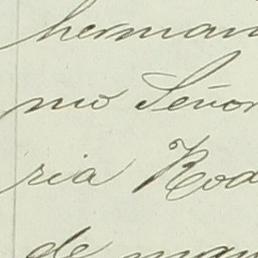 herman
mo Señor
ria Rod
de man